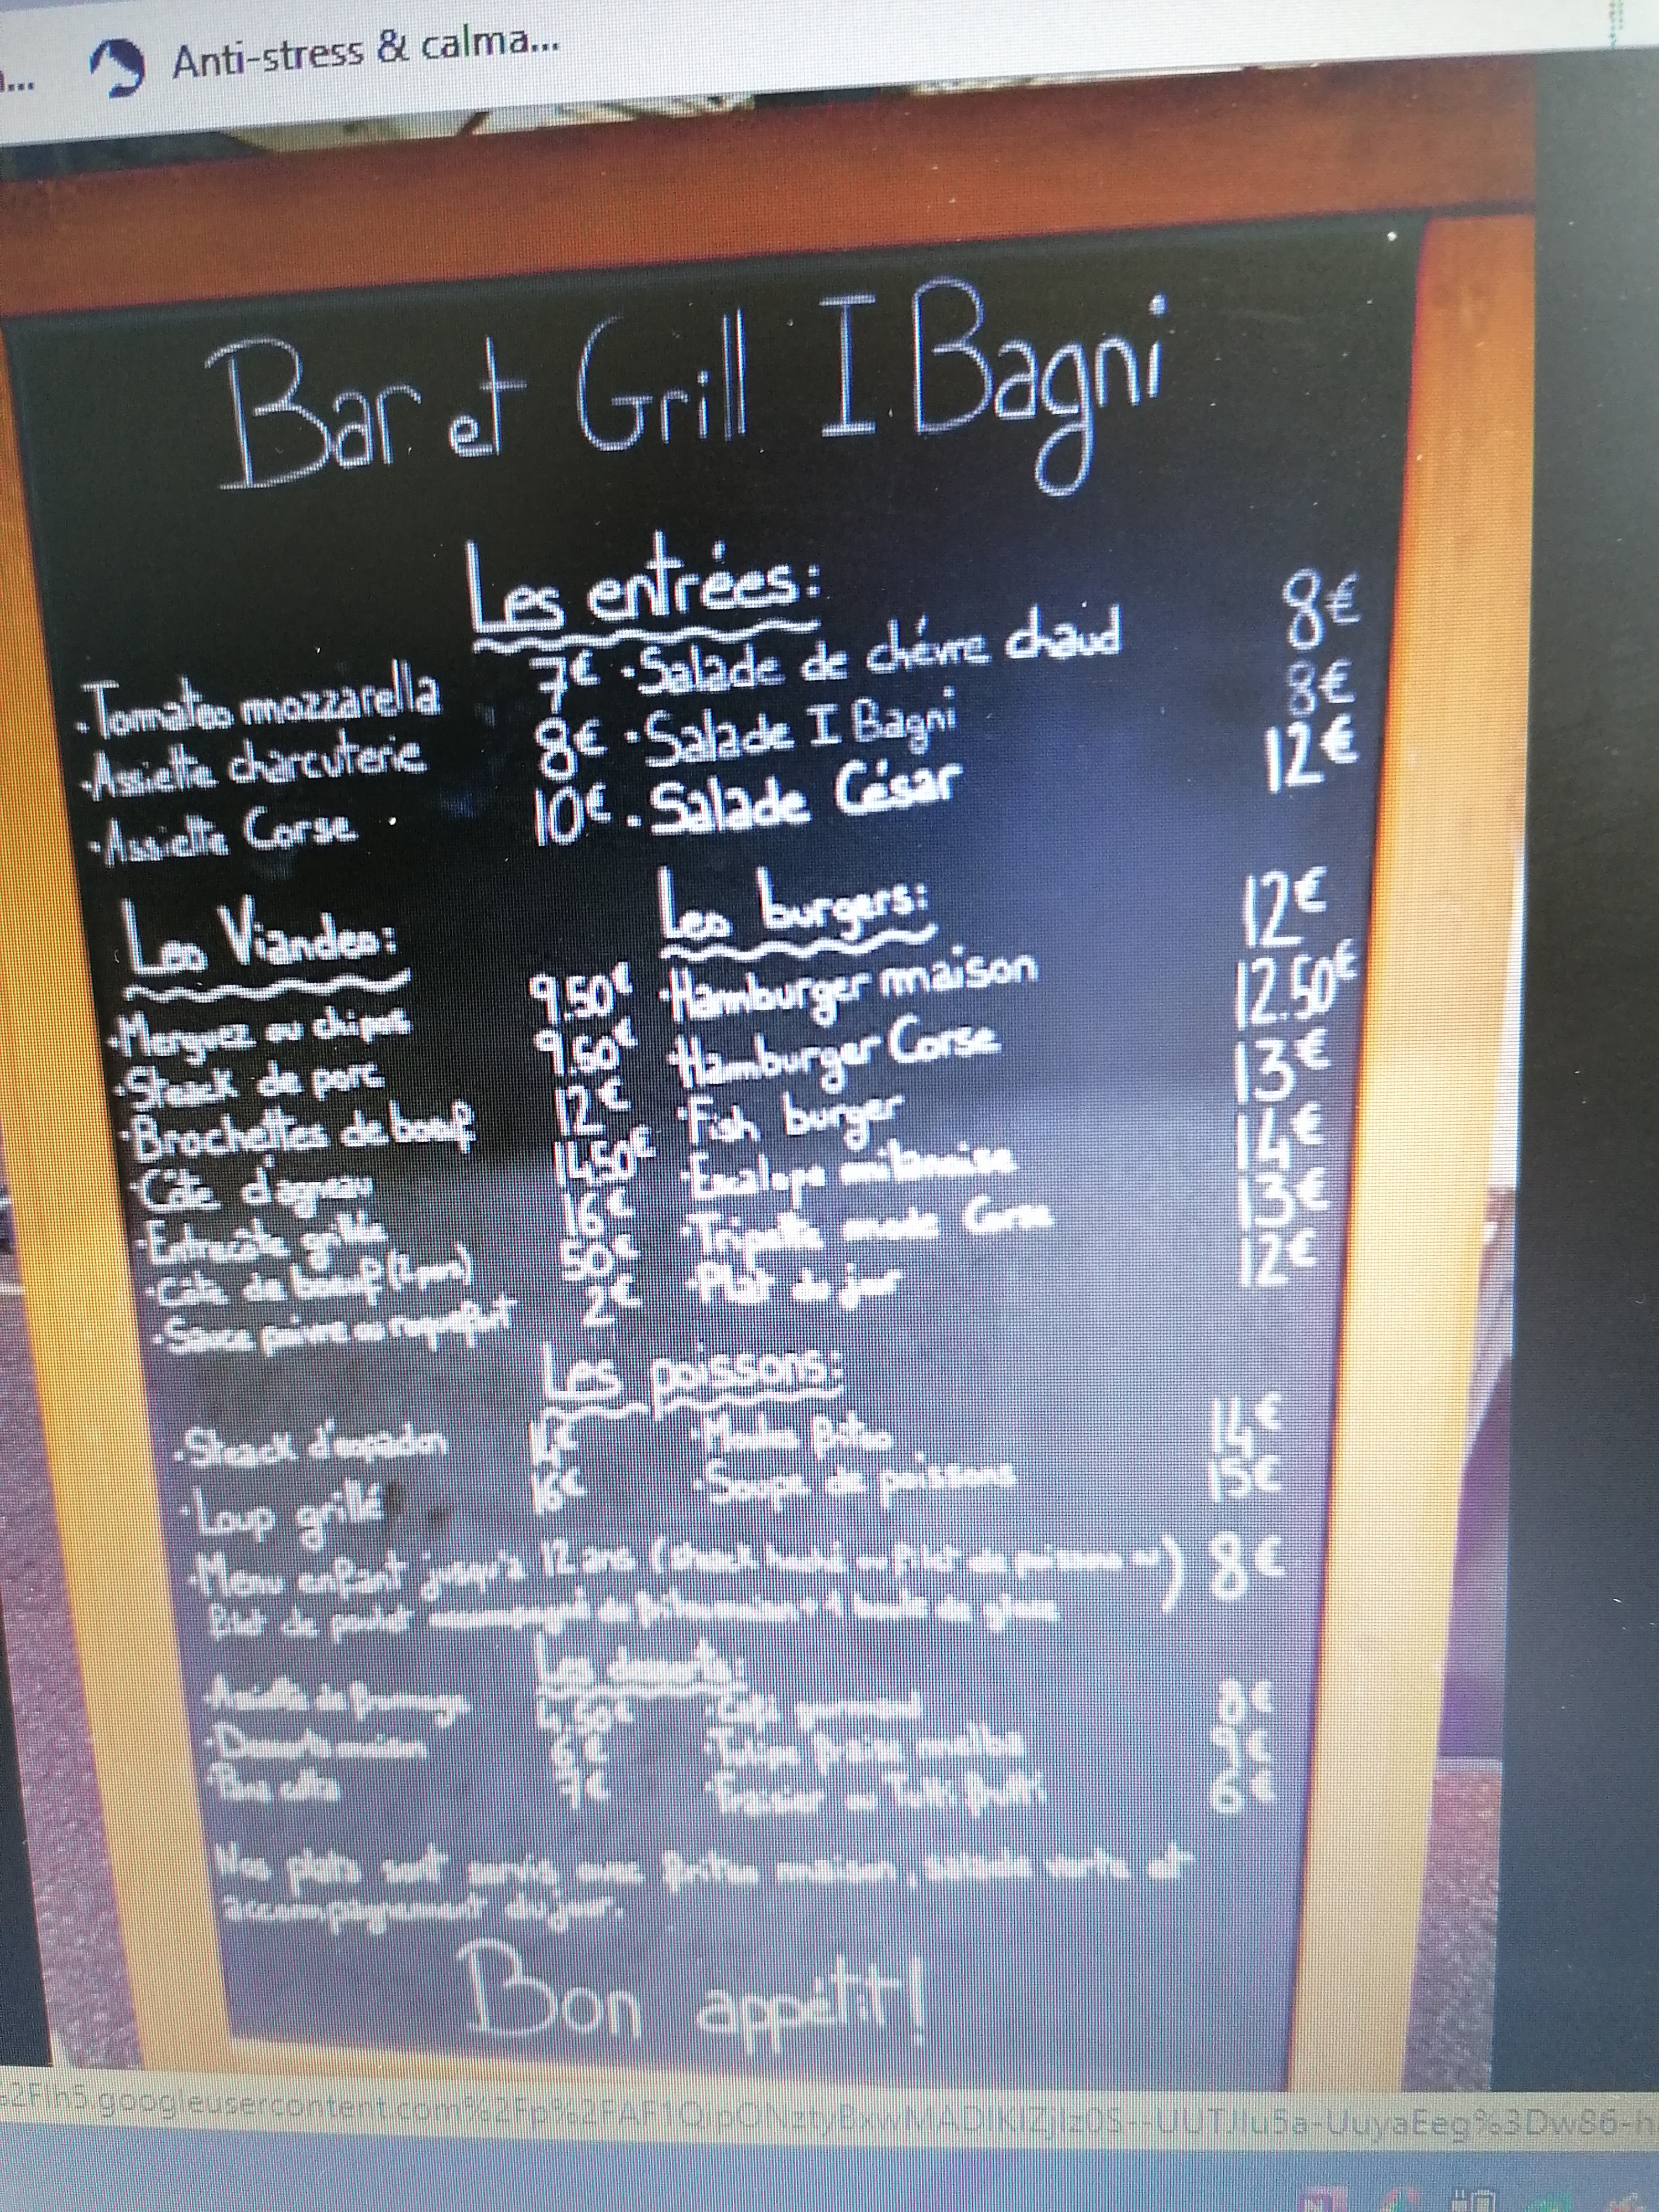 Anti-stress & calma...
Bar et Grill I Bagni
Les entrées:
· Tomates mozzarella 7€ · Salade de chévre chaud 8€
· Assiette charcuterie 8€ · Salade I Bagni 8€
· Assiette Corse 10€ · Salade César 12€
Les Viandes: Les burgers:
· Merguez ou chipos 9.50€ · Hamburger maison 12€
· Steack de porc 9.50€ · Hamburger Corse 12.50€
· Brochettes de boeuf 12€ · Fish burger 13€
· Côte d'agneau 14.50€ · Escalope milanaise 14€
· Entrecôte grillée 16€ · Tripette mode Corse 13€
· Côte de boeuf (2 pers) 50€ · Plat du jour 12€
· Sauce poivre ou roquefort 2€
Les poissons:
· Steack d'espadon · Moules frites 14€
· Loup grillé 16€ · Soupe de poissons 15€
· Menu enfant jusqu'à 12 ans (steack haché ou filet de poissons ou) 8€
filet de poulet accompagné de frites maison + 1 boule de glace
Les desserts:
Assiette de fromage 4.50€ · Café gourmand 8€
· Desserts maison 6€ · fraise melba 9€
· 7€ · Fraisier ou Tutti frutti 6€
Nos plats sont servis avec frites maison, salade verte et
accompagnement du jour.
Bon appétit!